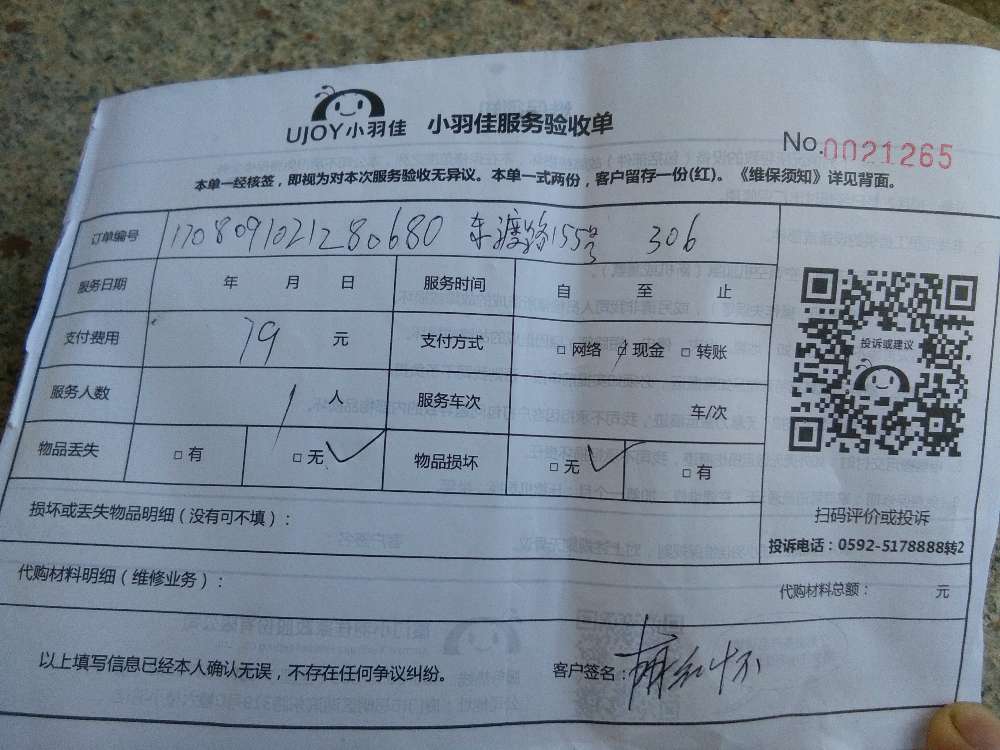 UJOY小羽佳 小羽佳服务验收单
No.0021265
本单一经核签，即视为对本次服务验收无异议。本单一式两份，客户留存一份(红)。《维保须知》详见背面。
订单编号 1708091021280680 东渡路155号 306
服务日期 年 月 日 服务时间 自 至 止
支付费用 79 元 支付方式 □ 网络 □ 现金 □ 转账
服务人数 1 人 服务车次 车/次
物品丢失 □ 有 □ 无 ✓ 物品损坏 □ 无 ✓ □ 有
投诉或建议
扫码评价或投诉
投诉电话：0592-5178888转2
损坏或丢失物品明细（没有可不填）：
代购材料明细（维修业务）： 代购材料总额： 元
以上填写信息已经本人确认无误，不存在任何争议纠纷。 客户签名：